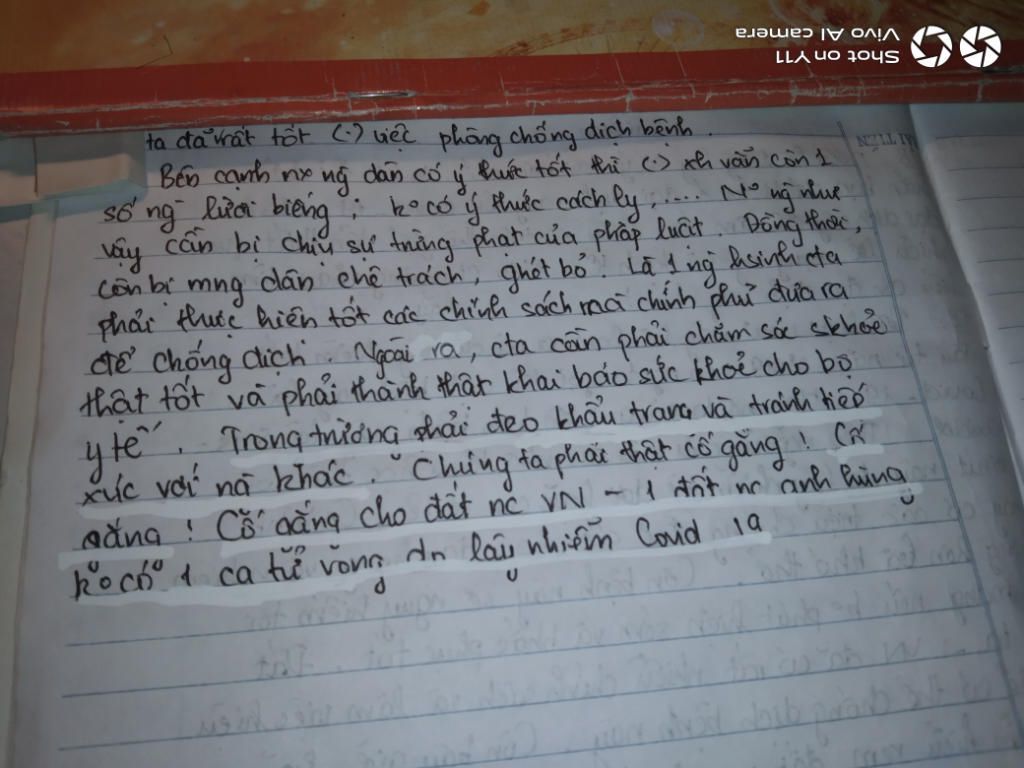 Shot on Y11
Vivo AI camera
ta đã rất tốt (.) việc phòng chống dịch bệnh.
Bên cạnh nx ng dân có ý thức tốt thì (.) xh vẫn còn 1
số ng lười biếng; ko có ý thức cách ly,.... No ng như
vậy cần bị chịu sự trừng phạt của pháp luật. Đồng thời,
cần bị mng dân chê trách, ghét bỏ. Là 1 ng hsinh cta
phải thực hiện tốt các chính sách mà chính phủ đưa ra
để chống dịch. Ngoài ra, cta cần phải chăm sóc skhoẻ
thật tốt và phải thành thật khai báo sức khoẻ cho bộ
y tế. Trong trường phải đeo khẩu trang và tránh tiếp
xúc với ng khác. Chúng ta phải thật cố gắng! Cố
gắng! Cố gắng cho đất nc VN - 1 đất nc anh hùng
ko có 1 ca tử vong do lây nhiễm Covid 19